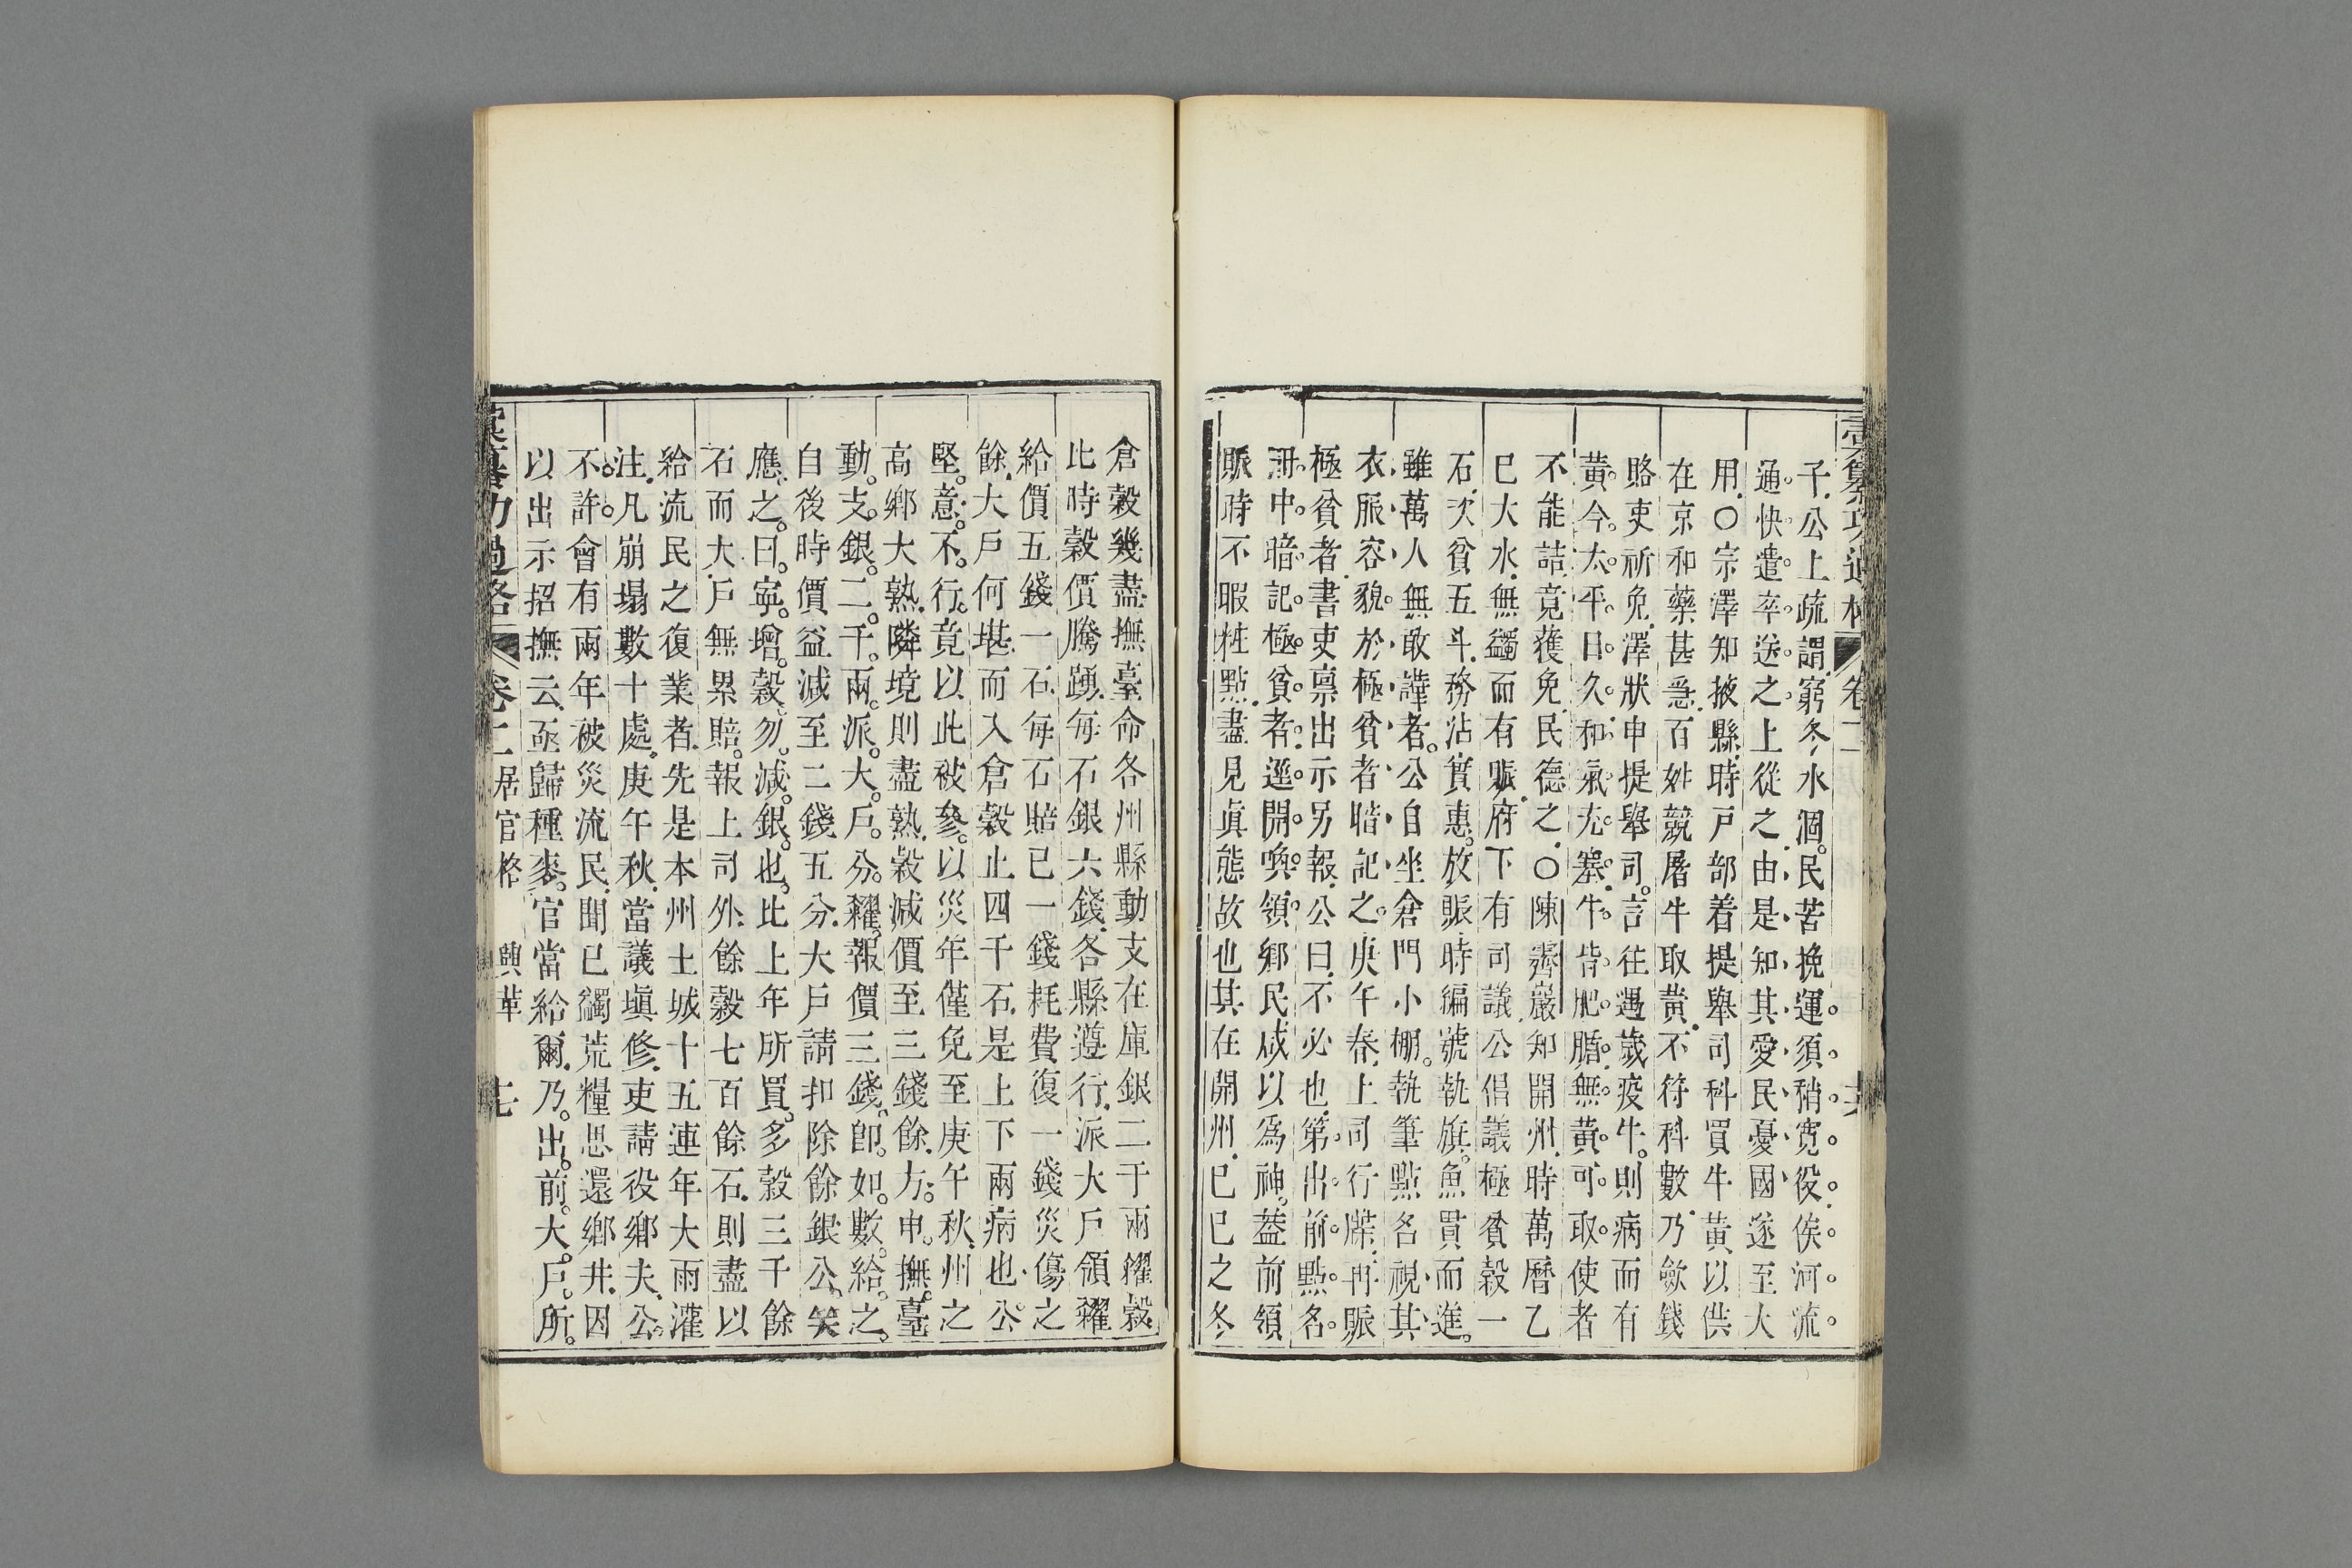 彙纂功過格 卷二 十六
子公上疏謂窮冬水涸民苦挽運須稍寬役俟河流
通快遣卒送之上從之由是知其愛民憂國遂至大
用○宗澤知掖縣時戸部着提舉司科買牛黃以供
在京和藥甚急百姓競屠牛取黃不符科數乃斂錢
賂吏祈免澤狀申提舉司言往遇歲疫牛則病而有
黃今太平日久和氣充塞牛皆肥腯無黃可取使者
不能詰竟獲免民德之○陳霽巖知開州時萬曆乙
巳大水無蠲而有賑府下有司議公倡議極貧穀一
石次貧五斗務沾實惠放賑時編號執旗魚貫而進
雖萬人無敢譁者公自坐倉門小棚執筆點名視其
衣服容貌於極貧者暗記之庚午春上司行牒再賑
極貧者書吏禀出示另報公曰不必也第出前點名
冊中暗記極貧者逕開喚領鄉民咸以為神葢前領
賑時不暇粧點盡見眞態故也其在開州已巳之冬
倉穀幾盡撫臺命各州縣動支在庫銀二千兩糴穀
比時穀價騰踴每石銀六錢各縣遵行派大戸領糴
給價五錢一石每石賠已一錢耗費復一錢災傷之
餘大戸何堪而入倉穀止四千石是上下兩病也公
堅意不行竟以此被參以災年僅免至庚午秋州之
高鄉大熟隣境則盡熟穀減價至三錢餘方申撫臺
動支銀二千兩派大戸分糴報價三錢卽如數給之
自後時價益減至二錢五分大戸請扣除餘銀公笑
應之曰寧增穀勿減銀也比上年所買多穀三千餘
石而大戸無累賠報上司外餘穀七百餘石則盡以
給流民之復業者先是本州土城十五連年大雨灌
注凡崩塌數十處庚午秋當議塡修吏請役鄉夫公
不許會有兩年被災流民聞已蠲荒糧思還鄉井因
以出示招撫云亟歸種麥官當給爾乃出前大戸所
彙纂功過格 卷二 居官格 興革 十七